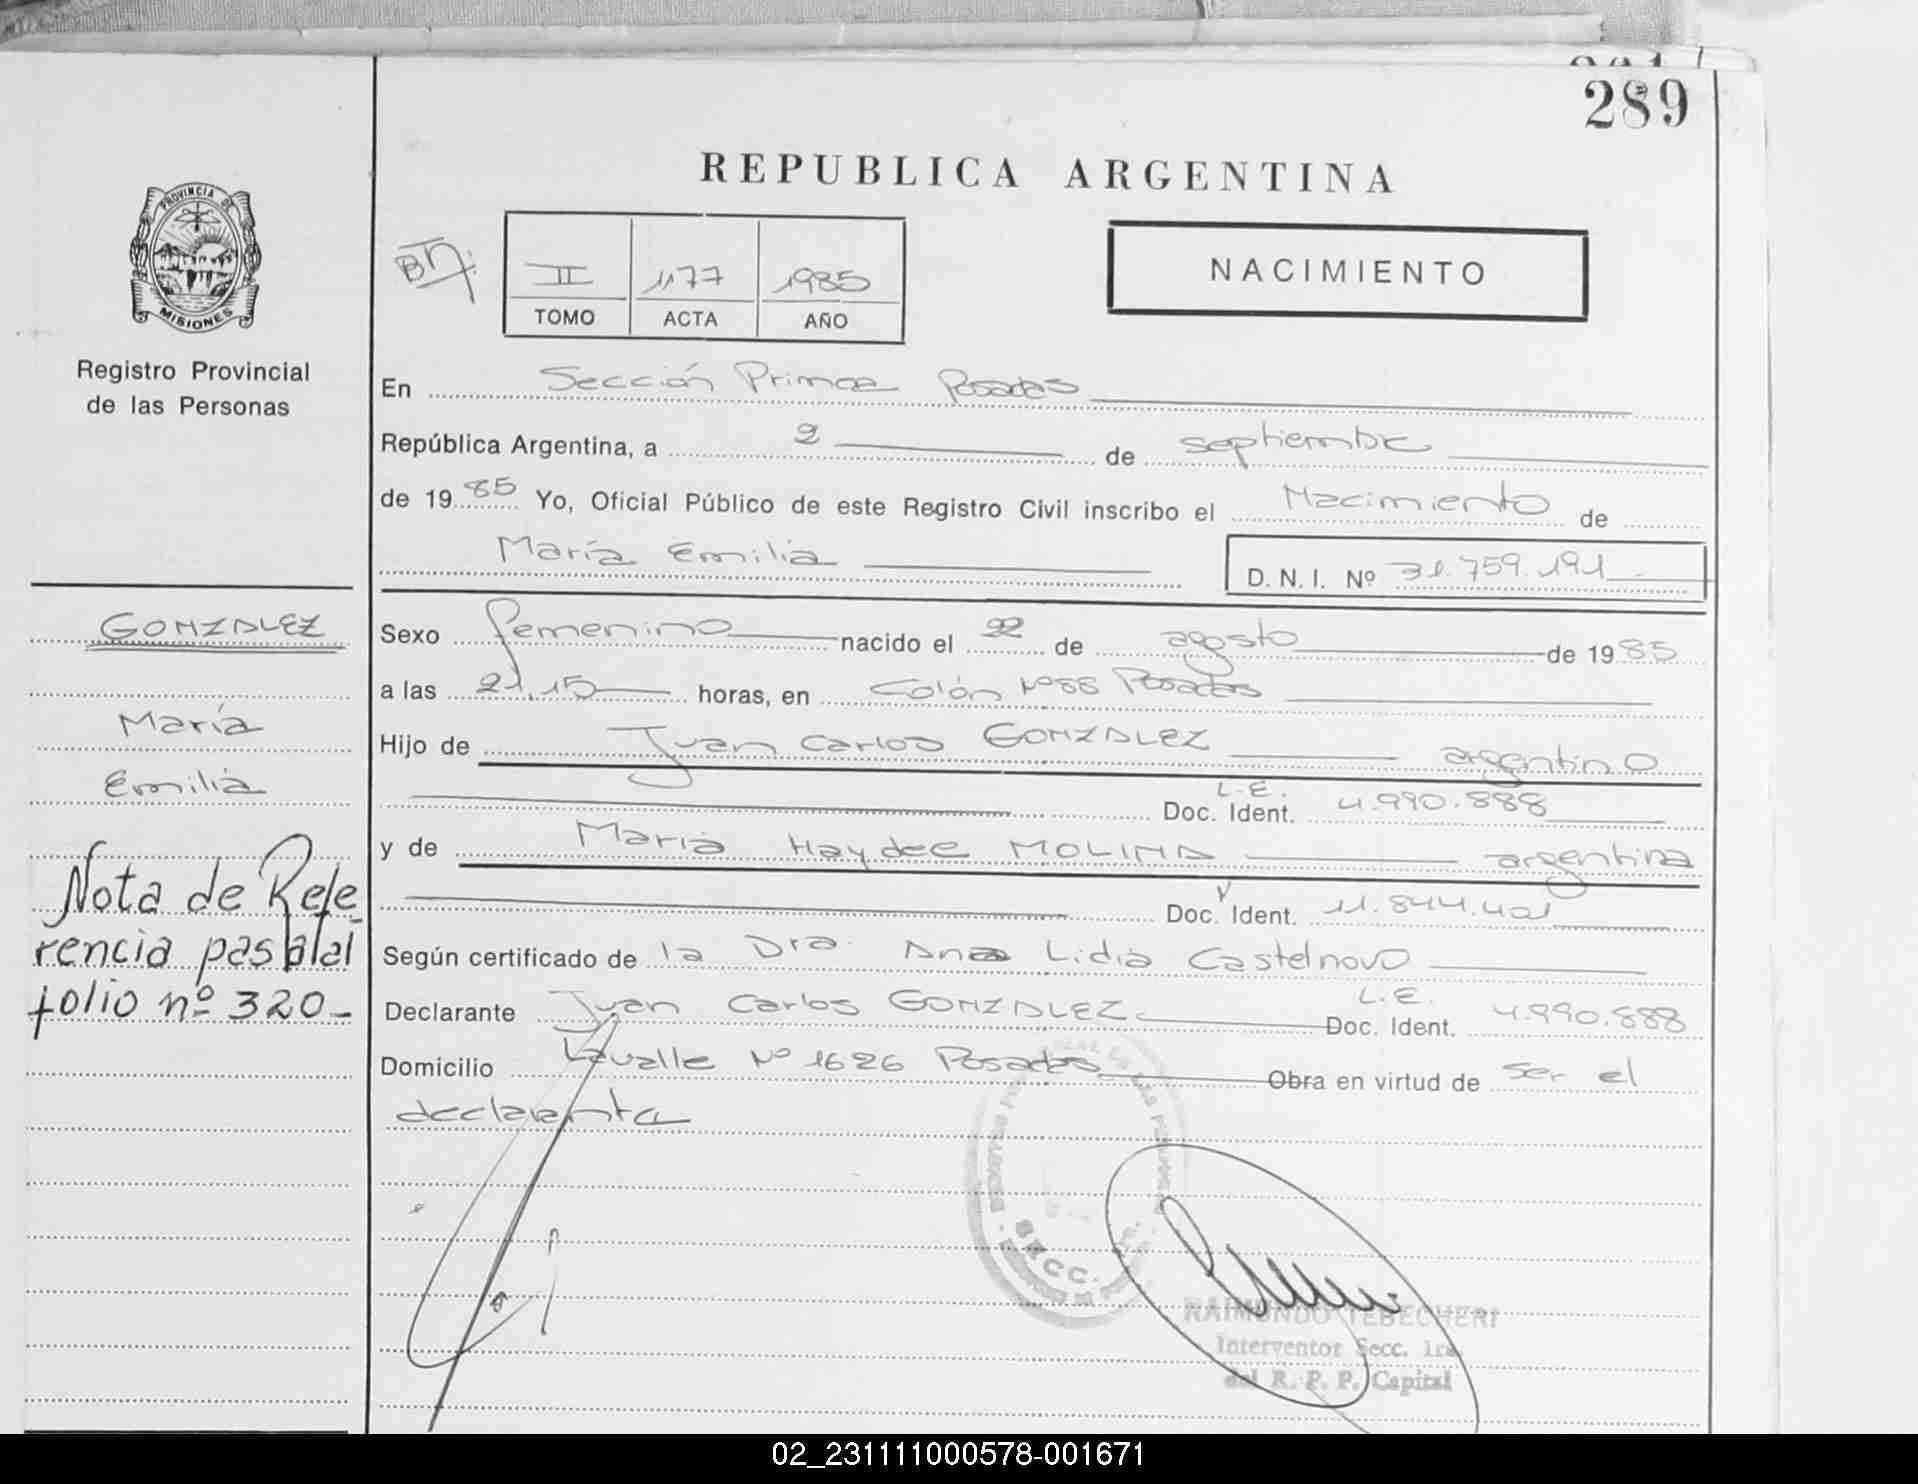 289
REPUBLICA ARGENTINA
PROVINCIA DE
MISIONES
Registro Provincial
de las Personas
II 1177 1985
TOMO ACTA AÑO
NACIMIENTO
En Sección Primera Posadas
República Argentina, a 2 de septiembre
de 1985 Yo, Oficial Público de este Registro Civil inscribo el Nacimiento de
María Emilia D. N. I. Nº 31.759.191
GONZALEZ
María
Emilia
Nota de Refe
rencia pasa al
folio nº 320-
Sexo femenino nacido el 22 de agosto de 1985
a las 21,15 horas, en Colón Nº 88 Posadas
Hijo de Juan Carlos GONZALEZ argentino
L.E.
Doc. Ident. 4.990.888
y de María Haydee MOLINA argentina
Doc. Ident. 11.844.401
Según certificado de la Dra. Ana Lidia Castelnovo
Declarante Juan Carlos GONZALEZ L.E. Doc. Ident. 4.990.888
Domicilio Lavalle Nº 1626 Posadas Obra en virtud de ser el
declarante
SECC.
RAIMUNDO TEBECHERI
Interventor Secc. 1ra.
del R. P. P. Capital
02_231111000578-001671